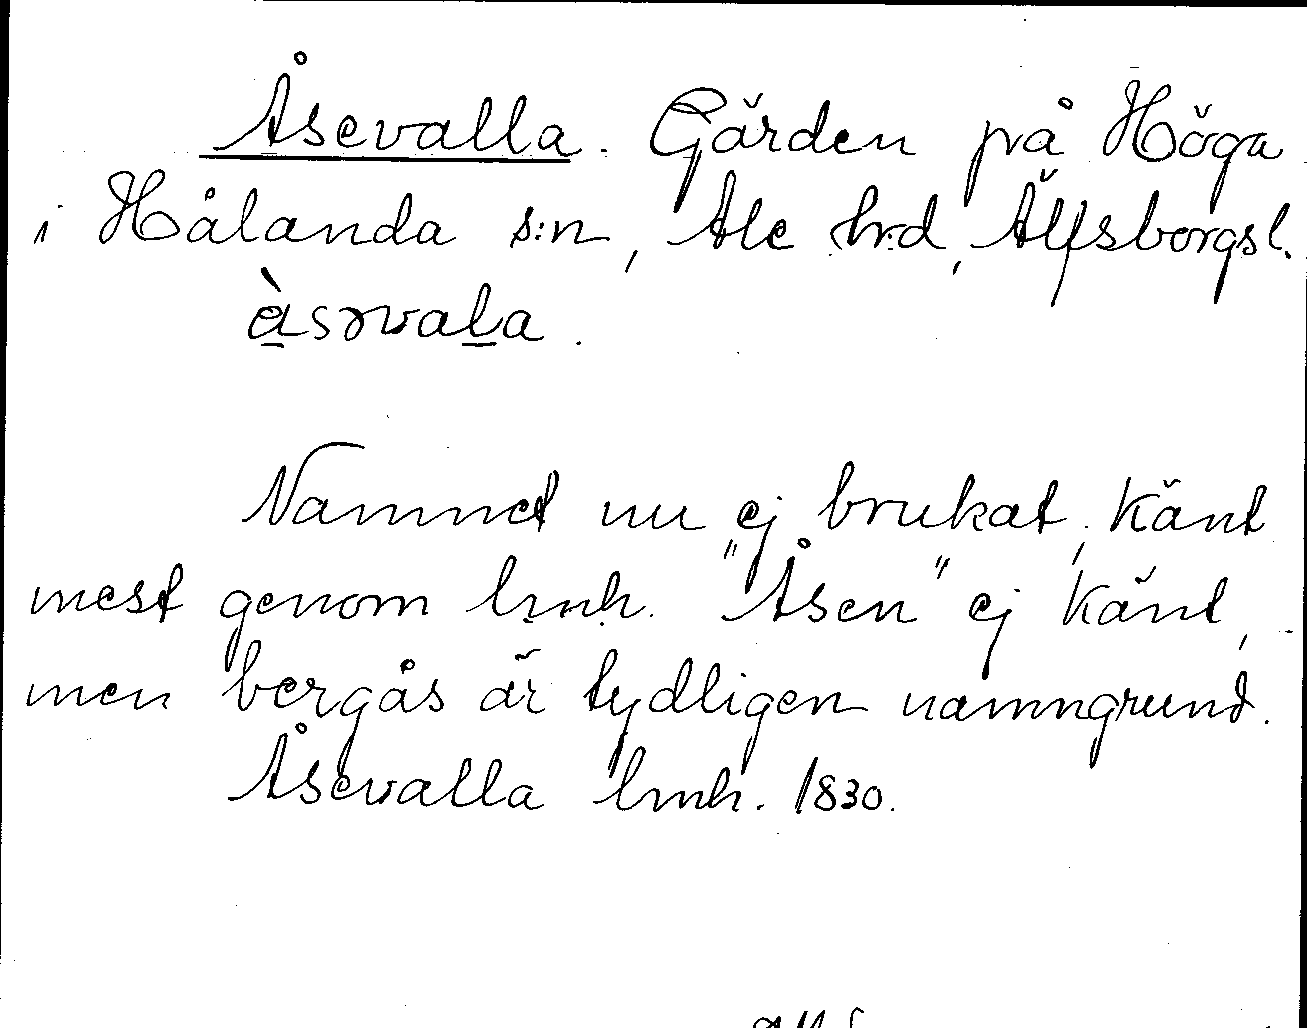 Åsevalla. Gärden på Höga
i Hålanda s:n, Ale hrd, Älfsborgs l.
àsəvala.
Namnet nu ej brukat, känt
mest genom lmh. "Åsen" ej känt,
men bergås är tydligen namngrund.
Åsevalla lmh. 1830.